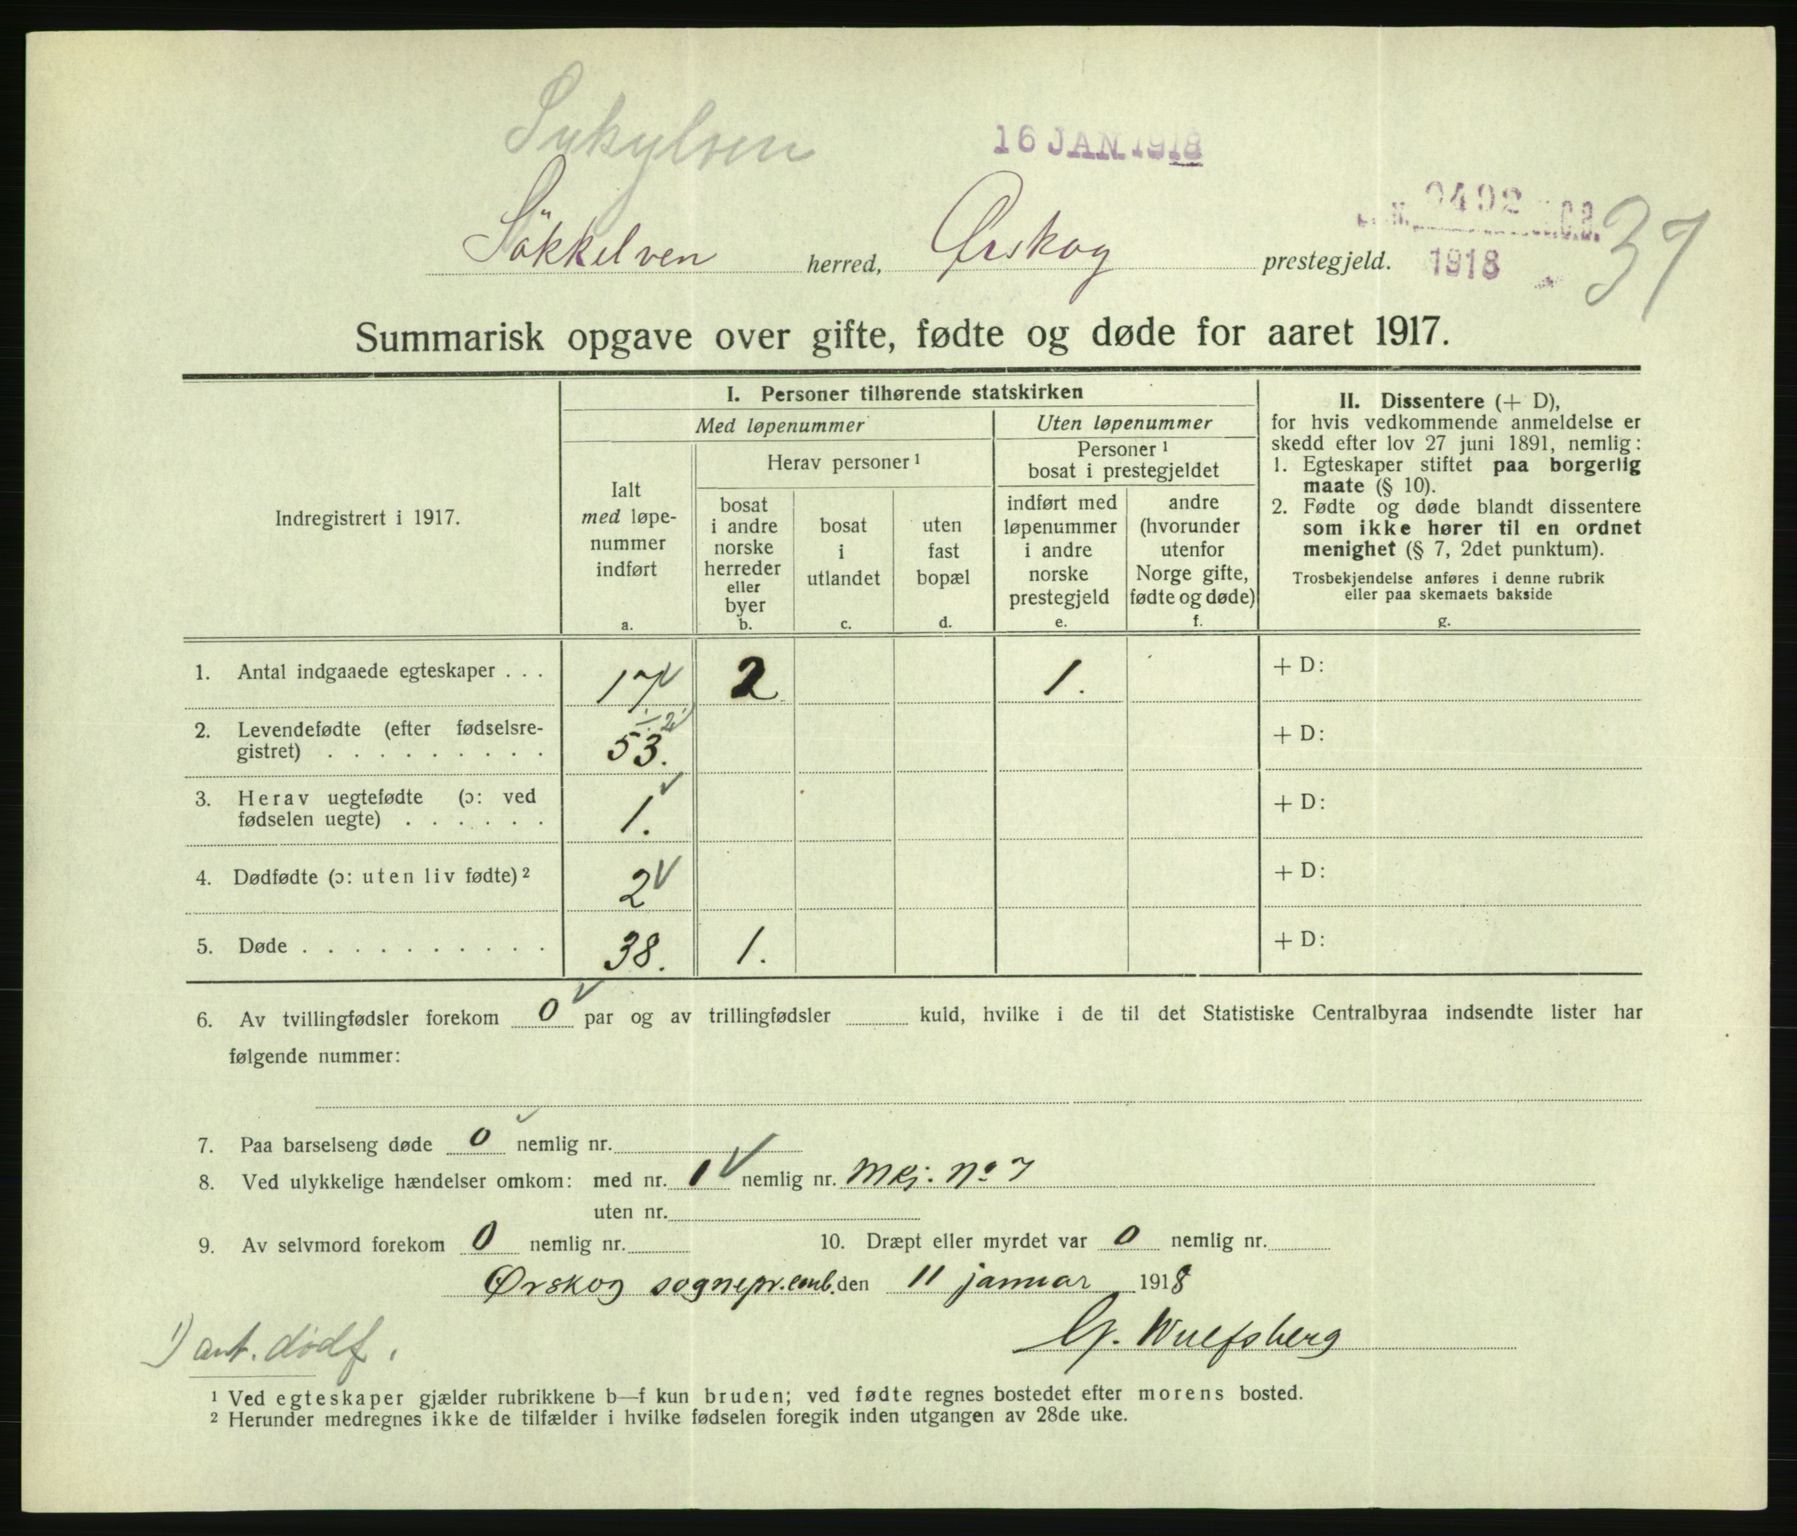 Sykylven
16 JAN 1918
Sökkelven herred, Ørskog prestegjeld.
9492
1918
37
Summarisk opgave over gifte, fødte og døde for aaret 1917.
Indregistrert i 1917.
I. Personer tilhørende statskirken
Med løpenummer
Uten løpenummer
Ialt
med løpe-
nummer
indført
a.
Herav personer ¹
bosat
i andre
norske
herreder
eller
byer
b.
bosat
i
utlandet
c.
uten
fast
bopæl
d.
Personer ¹
bosat i prestegjeldet
indført med
løpenummer
i andre
norske
prestegjeld
e.
andre
(hvorunder
utenfor
Norge gifte,
fødte og døde)
f.
II. Dissentere (+ D),
for hvis vedkommende anmeldelse er
skedd efter lov 27 juni 1891, nemlig:
1. Egteskaper stiftet paa borgerlig
maate (§ 10).
2. Fødte og døde blandt dissentere
som ikke hører til en ordnet
menighet (§ 7, 2det punktum).
Trosbekjendelse anføres i denne rubrik
eller paa skemaets bakside
g.
1. Antal indgaaede egteskaper . . . 17 2 1. + D:
÷ 2 ¹)
2. Levendefødte (efter fødselsre-
gistret) . . . . . . . . . 53. + D:
3. Herav uegtefødte (ɔ: ved
fødselen uegte) . . . . . . 1. + D:
4. Dødfødte (ɔ: uten liv fødte) ² 2 + D:
5. Døde . . . . . . . . . . 38. 1. + D:
6. Av tvillingfødsler forekom 0 par og av trillingfødsler kuld, hvilke i de til det Statistiske Centralbyraa indsendte lister har
følgende nummer:
7. Paa barselseng døde 0 nemlig nr.
8. Ved ulykkelige hændelser omkom: med nr. 1 nemlig nr. Mkj. No 7
uten nr.
9. Av selvmord forekom 0 nemlig nr. 10. Dræpt eller myrdet var 0 nemlig nr.
Ørskog sognepr.emb. den 11 januar 1918
Wulfsberg
1) ant. dødf.
¹ Ved egteskaper gjælder rubrikkene b—f kun bruden; ved fødte regnes bostedet efter morens bosted.
² Herunder medregnes ikke de tilfælder i hvilke fødselen foregik inden utgangen av 28de uke.